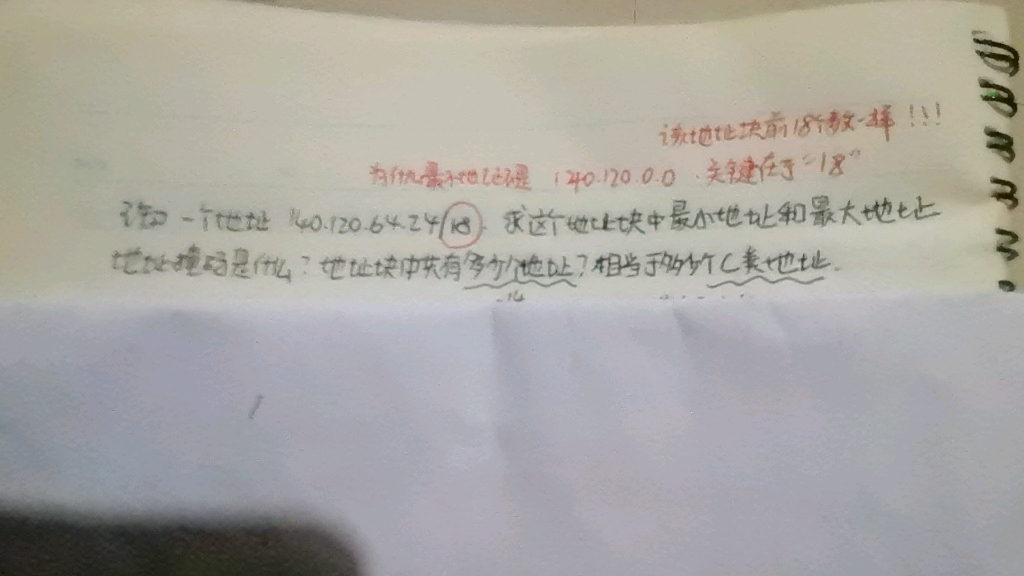 该地址块前18个数一样!!!
为什么最小地址不是 140.120.0.0 . 关键在于“18”
已知一个地址 140.120.64.24/18. 求这个地址块中最小地址和最大地址
地址掩码是什么? 地址块中共有多少个地址? 相当于多少个C类地址.